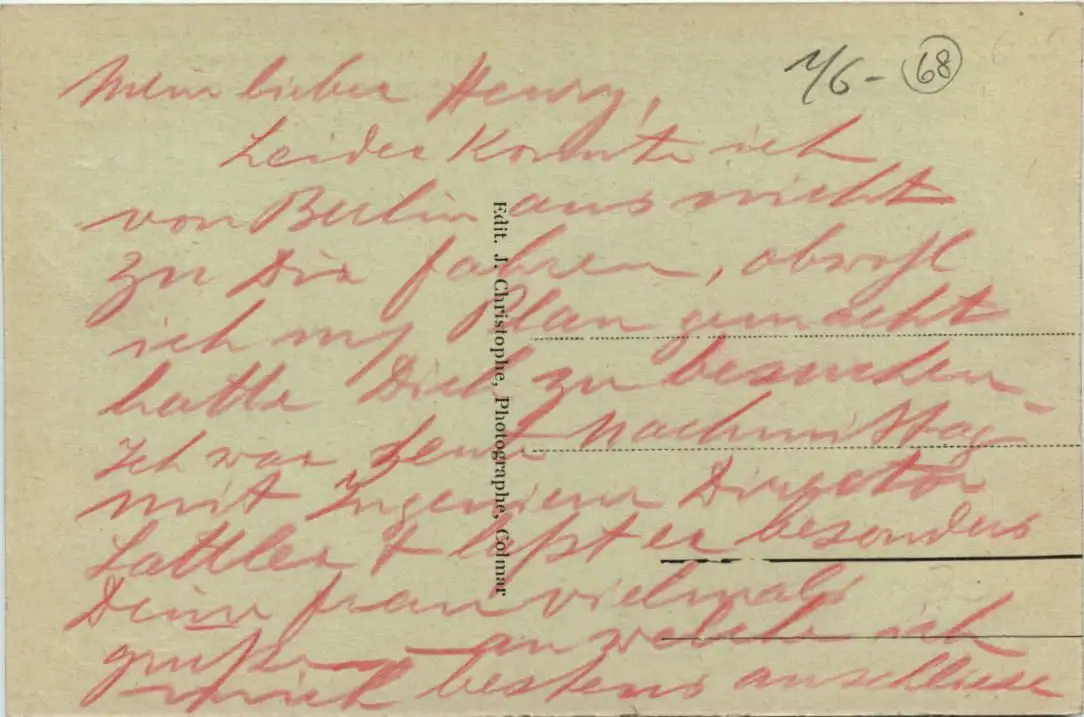 1/6 - 68
Mein lieber Henry,
Leider konnte ich
von Berlin aus nicht
zu Dir fahren, obwohl
ich Plan gemacht
hatte Dich zu besuchen.
Ich war heute Nachmittag
mit Ingenieur Director
Lattler & läßt er besonders
Deine Frau vielmals
grüßen - an welche ich
mich bestens anschliesse
Edit. J. Christophe, Photographe, Colmar